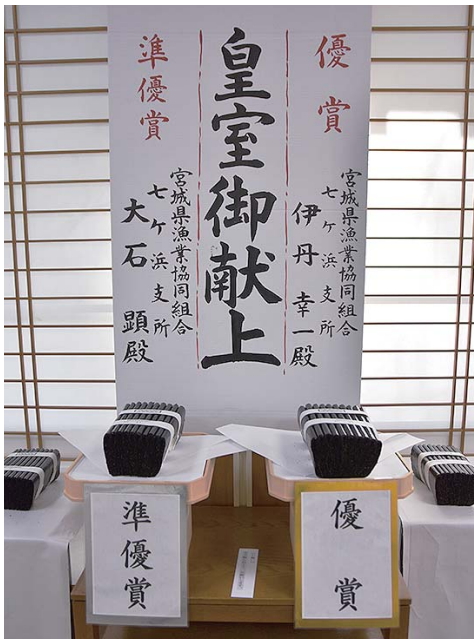 優賞
宮城県漁業協同組合
七ケ浜支所
伊丹幸一殿
皇室御献上
準優賞
宮城県漁業協同組合
七ケ浜支所
大石顕殿
優賞
準優賞